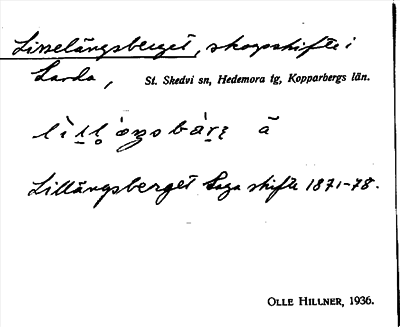 Lisselängsberget, skogsskifte i
Larda, St. Skedvi sn, Hedemora tg, Kopparbergs län.
Lillängsberget Laga skifte 1871-78.
OLLE HILLNER, 1936.